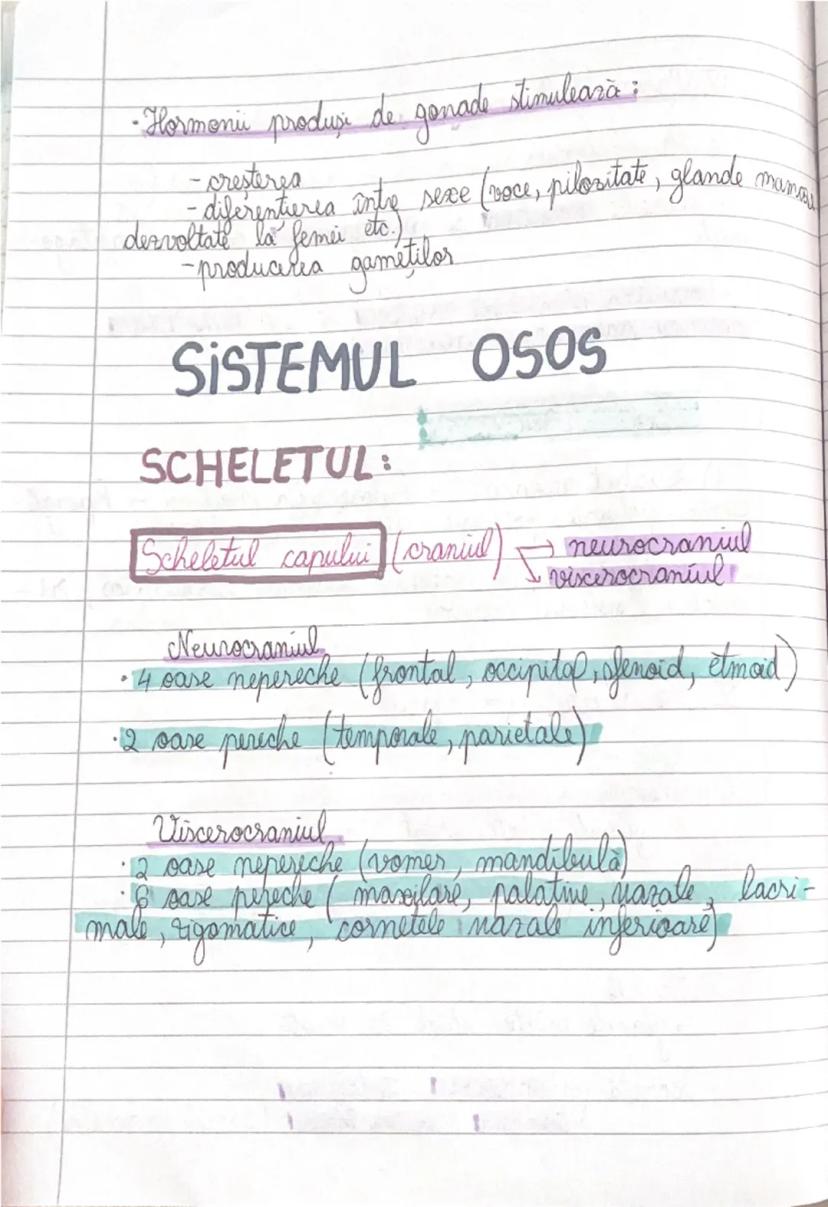 · Hormonii produși de gonade stimulează :
- creșterea
- diferențierea între sexe (voce, pilozitate, glande
dezvoltate la femei etc.)
- producerea gameților
SISTEMUL OSOS
SCHELETUL:
Scheletul capului (craniul) → neurocraniul
viscerocraniul
Neurocraniul
· 4 oase nepereche (frontal, occipital, sfenoid, etmoid)
· 2 oase pereche (temporale, parietale)
Viscerocraniul
· 2 oase nepereche (vomer, mandibulă)
· 6 oase pereche ( maxilare, palatine, nazale, lacri-
male, zigomatice, cornetele nazale inferioare)